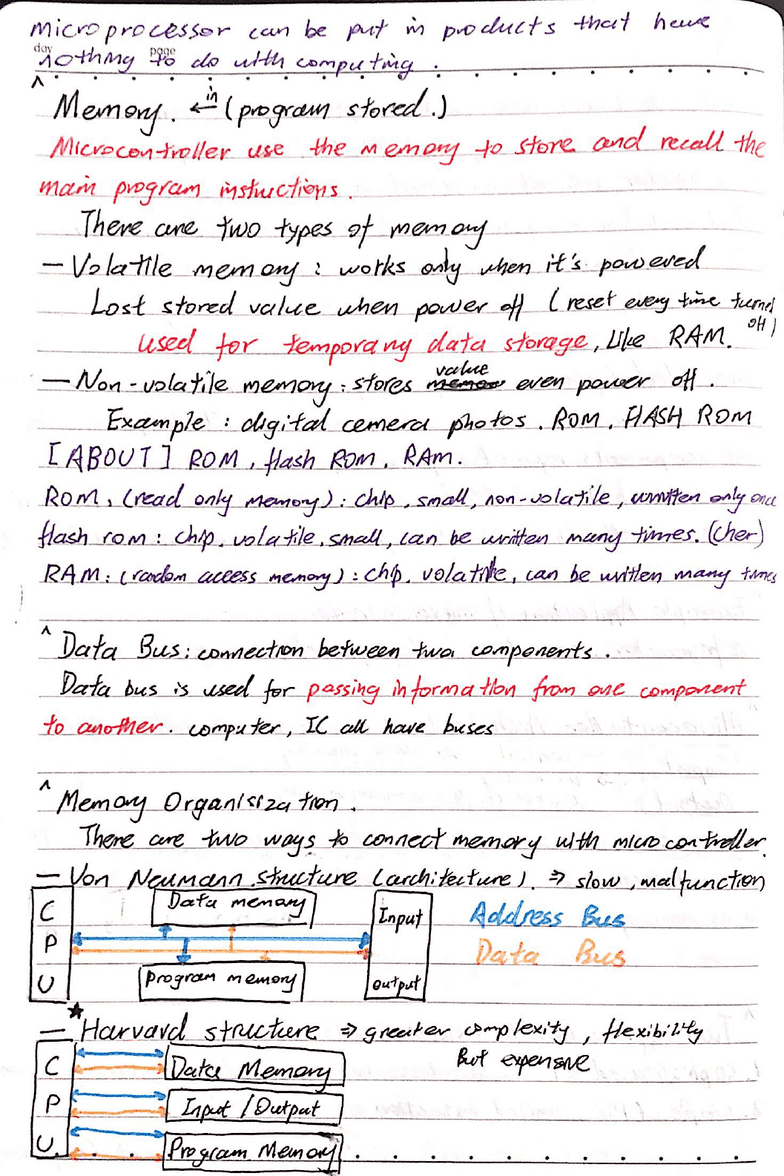 microprocessor can be put in products that have
day page
nothing to do with computing.
^
Memory. ← in (program stored.)
Microcontroller use the memory to store and recall the
main program instuctions.
There are two types of memory
– Volatile memory : works only when it's powered
Lost stored value when power off (reset every time turned off)
used for temporary data storage, Like RAM.
– Non-volatile memory : stores value even power off.
Example : digital camera photos. ROM. FLASH ROM
[ABOUT] ROM, flash ROM. RAM.
ROM, (read only memory) : chip, small, non-volatile, written only once
flash rom : chip. volatile, small, can be written many times. (cher)
RAM : (random access memory) : chip. volatile, can be written many times
^ Data Bus : connection between two components.
Data bus is used for passing information from one component
to another. computer, IC all have buses
^ Memory Organisization.
There are two ways to connect memory with microcontroller.
– Von Neumann structure (architecture). ⇒ slow, malfunction
C P U
Data memory
Program memory
Input
output
Address Bus
Data Bus
★
– Harvard structure ⇒ greater complexity, flexibility
But expensive
C P U
Data Memory
Input / Output
Program Memory